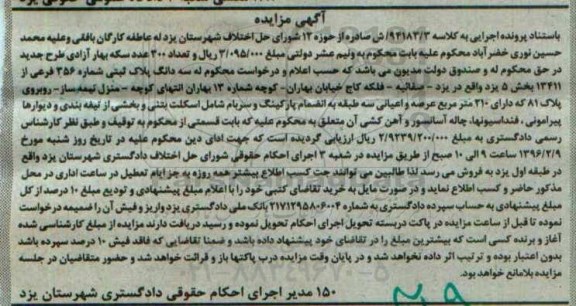 آگهی مزایده
باستناد پرونده اجرایی به کلاسه ۹۴۱۸۳/۳/ش صادره از حوزه ۱۳ شورای حل اختلاف شهرستان یزد له عاطفه کارگان بافقی وعلیه محمد
حسین نوری خضر آباد محکوم علیه بابت محکوم به ونیم عشر دولتی مبلغ ۳/۰۹۵/۰۰۰ ریال و تعداد ۳۰۰ عدد سکه بهار آزادی طرح جدید
در حق محکوم له و صندوق دولت مدیون می باشد که حسب اعلام و درخواست محکوم له سه دانگ پلاک ثبتی شماره ۳۵۶ فرعی از
۱۳۴۱۱ بخش ۵ یزد واقع در یزد - صفائیه - فلکه کاج خیابان بهاران - کوچه شماره ۱۳ بهاران انتهای کوچه - منزل نیمه ساز - روبروی
پلاک ۸۱ که دارای ۲۱۰ متر مربع عرصه و اعیانی سه طبقه به انضمام پارکینگ و سربام شامل اسکلت بتنی و بخشی از تیغه بندی و دیوارها
پیرامونی ، فنداسیونها، چاله آسانسور و آهن کشی آن متعلق به محکوم علیه که بابت قسمتی از محکوم به توقیف و طبق نظر کارشناس
رسمی دادگستری به مبلغ ۲/۹۲۳۹/۲۰۰/۰۰۰ ریال ارزیابی گردیده است که جهت ادای دین محکوم علیه در تاریخ روز شنبه مورخ
۱۳۹۶/۲/۹ ساعت ۹ الی ۱۰ صبح از طریق مزایده در شعبه ۳ اجرای احکام حقوقی شورای حل اختلاف دادگستری شهرستان یزد واقع
در طبقه اول یزد به فروش می رسد لذا طالبین می توانند جت کسب اطلاع بیشتر همه روزه به جز ایام تعطیل در ساعت اداری در محل
مذکور حاضر و کسب اطلاع نماید و در صورت مایل به خرید تقاضای کتبی خود را با اعلام مبلغ پیشنهادی و تودیع مبلغ ۱۰ درصد از کل
مبلغ پیشنهادی به حساب سپرده دادگستری به شماره ۲۱۷۱۲۹۵۸۰۶۰۰۴ بانک ملی دادگستری یزد واریز و فیش آن را ضمیمه درخواست
نموده تا قبل از ساعت مزایده در پاکت دربسته تحویل اجرای احکام تحویل نموده و رسید دریافت دارند مزایده از مبلغ کارشناسی شده
آغاز و برنده کسی است که بیشترین مبلغ را در تقاضای خود پیشنهاد داده باشد و ضمنا تقاضایی که فاقد فیش ۱۰ درصد سپرده باشد
بدون اعتبار بوده و ترتیب اثر داده نخواهد شد و در پایان وقت مزایده درب پاکتها باز و قرائت خواهد شد و حضور متقاضیان در جلسه
مزایده بلامانع خواهد بود.
۱۵۰ مدیر اجرای احکام حقوقی دادگستری شهرستان یزد